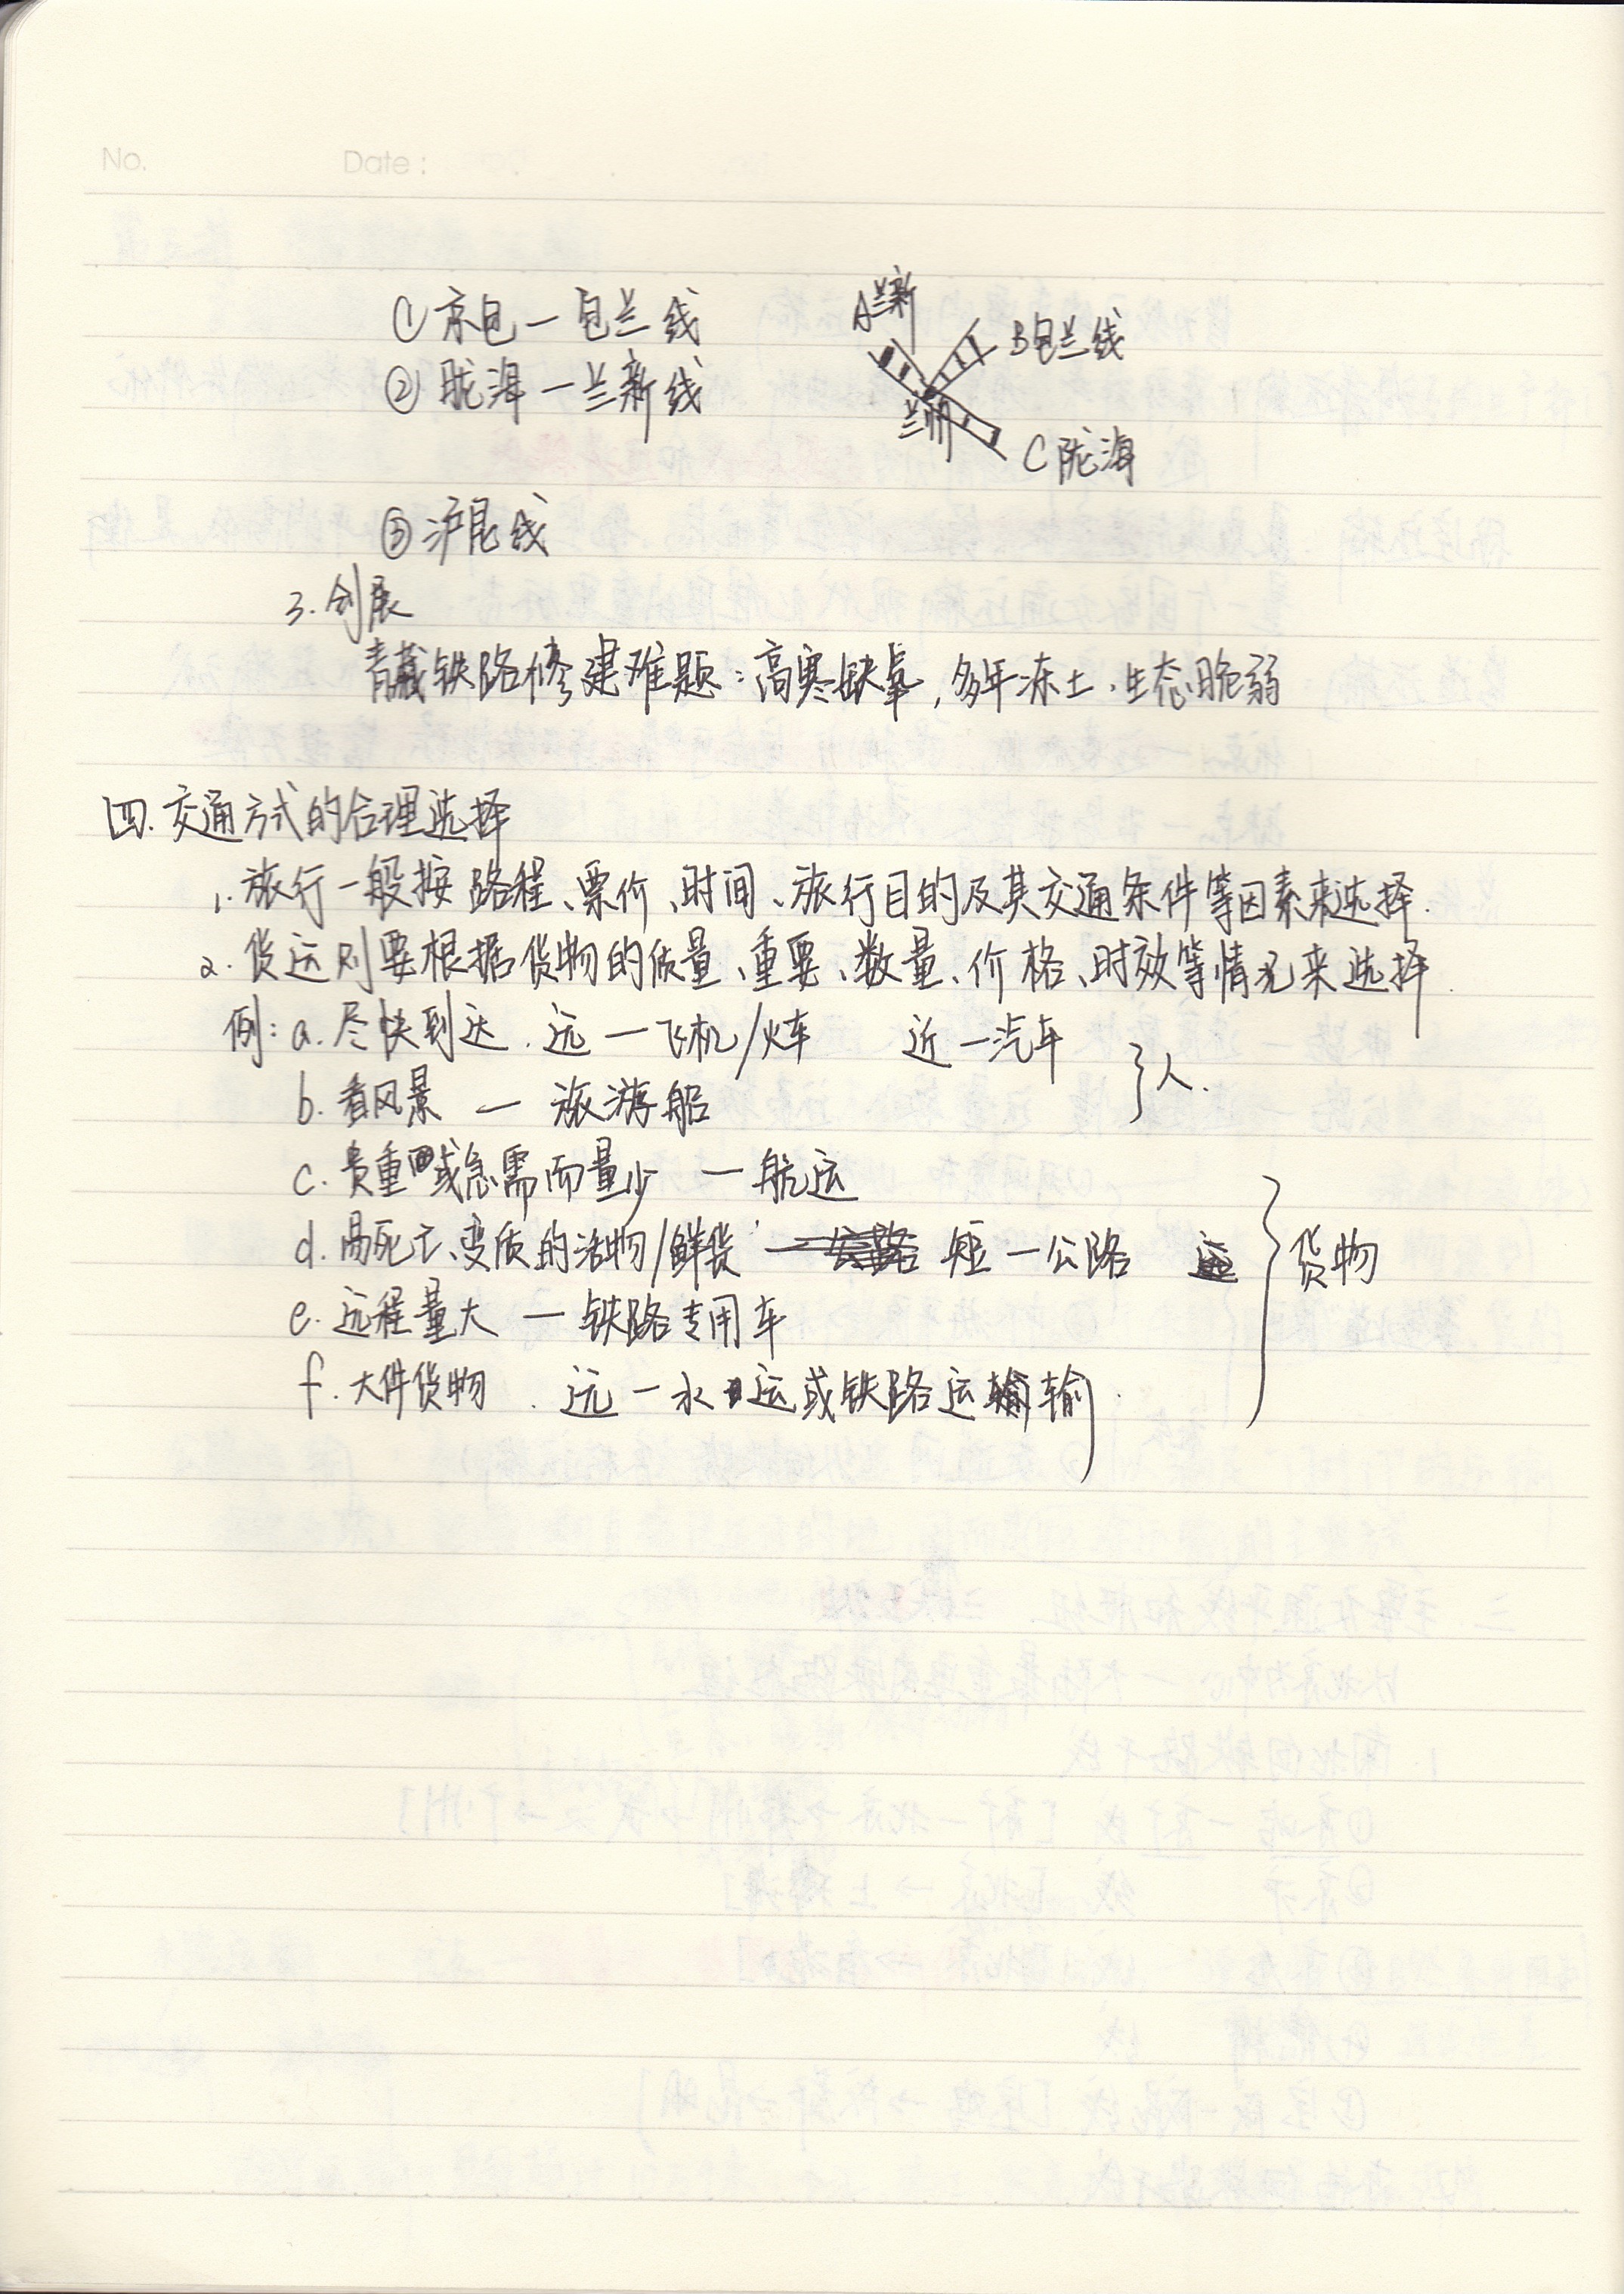 No. Date:
①京包一包兰线
②陇海一兰新线
A兰新
B包兰线
兰州
C陇海
③沪昆线
3.创展
青藏铁路修建难题:高寒缺氧,多年冻土、生态脆弱
四.交通方式的合理选择
1.旅行一般按路程、票价、时间、旅行目的及其交通条件等因素来选择.
2.货运则要根据货物的质量、重要、数量、价格、时效等情况来选择.
例:a.尽快到达.远一飞机/火车 近一汽车
b.看风景 一 旅游船
}人.
c.贵重或急需而量少 一航运
d.易死亡、变质的活物/鲜货 短一公路
e.远程量大 一铁路专用车
f.大件货物.远一水运或铁路运输.
}货物